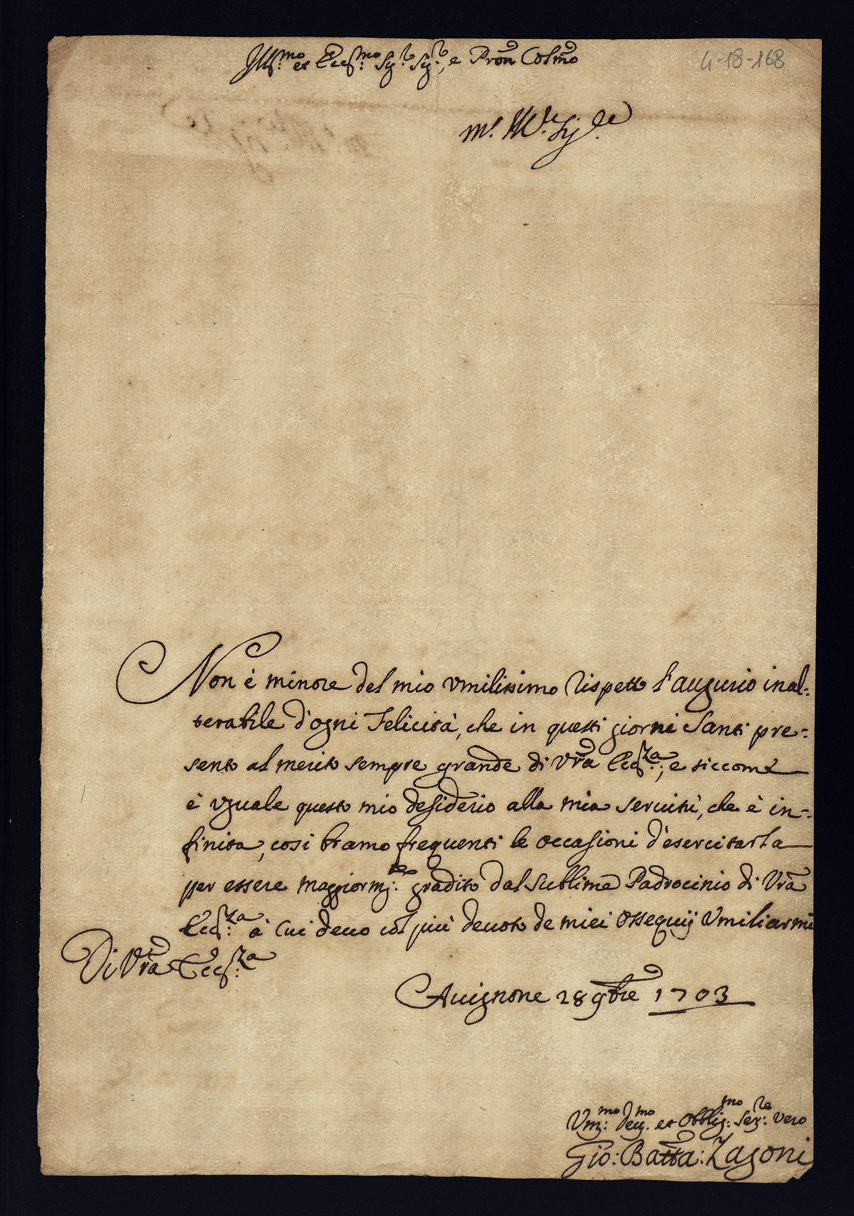 Ill:mo et Ecc:mo Sig:r Sig:r, e Pron Colmo
4-18-168
Non è minore del mio vmilissimo rispetto l'augurio inal-
terabile d'ogni Felicità, che in questi giorni Santi pre-
sento al merito sempre grande di Vra Ecc:za, e siccome
è vguale questo mio desiderio alla mia servitù, che è in-
finita, così bramo frequenti le occasioni d'esercitarla
per essere maggiorm:te gradito dal sublime Padrocinio di Vra
Ecc:za à cui devo col più devoto de miei ossequij vmiliarmi
Di Vra Ecc:za
Avignone 28 9bre 1703
Vm:mo Dev:mo et Obblig:mo Ser:re vero
Gio: Batta: Zagoni